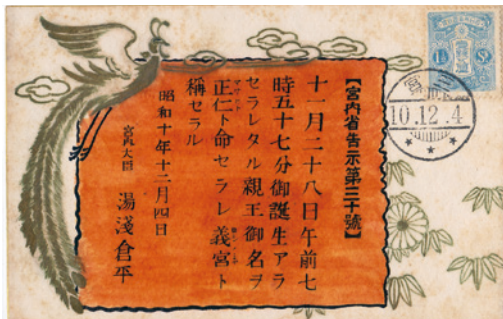 【宮内省告示第三十號】
十一月二十八日午前七
時五十七分御誕生アラ
セラレタル親王御名ヲ
正仁ト命セラレ義宮ト
稱セラル
昭和十年十二月四日
宮内大臣 湯淺倉平
10.12.4
1½